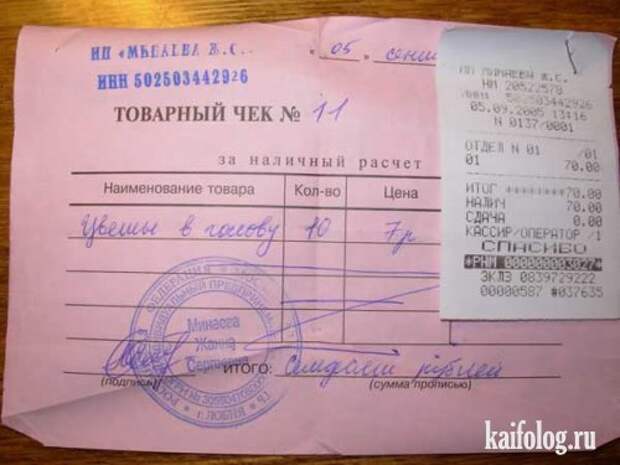 ИП «МИНАЕВА Ж.С.
ИНН 502503442926
05
ТОВАРНЫЙ ЧЕК № 11
за наличный расчет
Наименование товара Кол-во Цена
Цветы в голову 10 7р
ИТОГО: Семьдесят рублей
(подпись) (сумма прописью)
Минаева
Жанна
Сергеевна
г. ЛОБНЯ
ИП МИНАЕВА Ж.С.
НМ 20522578
ИНН 502503442926
05.09.2005 13:16
N 0137/0001
ОТДЕЛ N 01 /01
01 70.00
ИТОГ *******70.00
НАЛИЧ 70.00
СДАЧА 0.00
КАССИР/ОПЕРАТОР /1
СПАСИБО
*РНМ 000000003027*
ЭКЛЗ 0839729222
00000587 #037635
kaifolog.ru